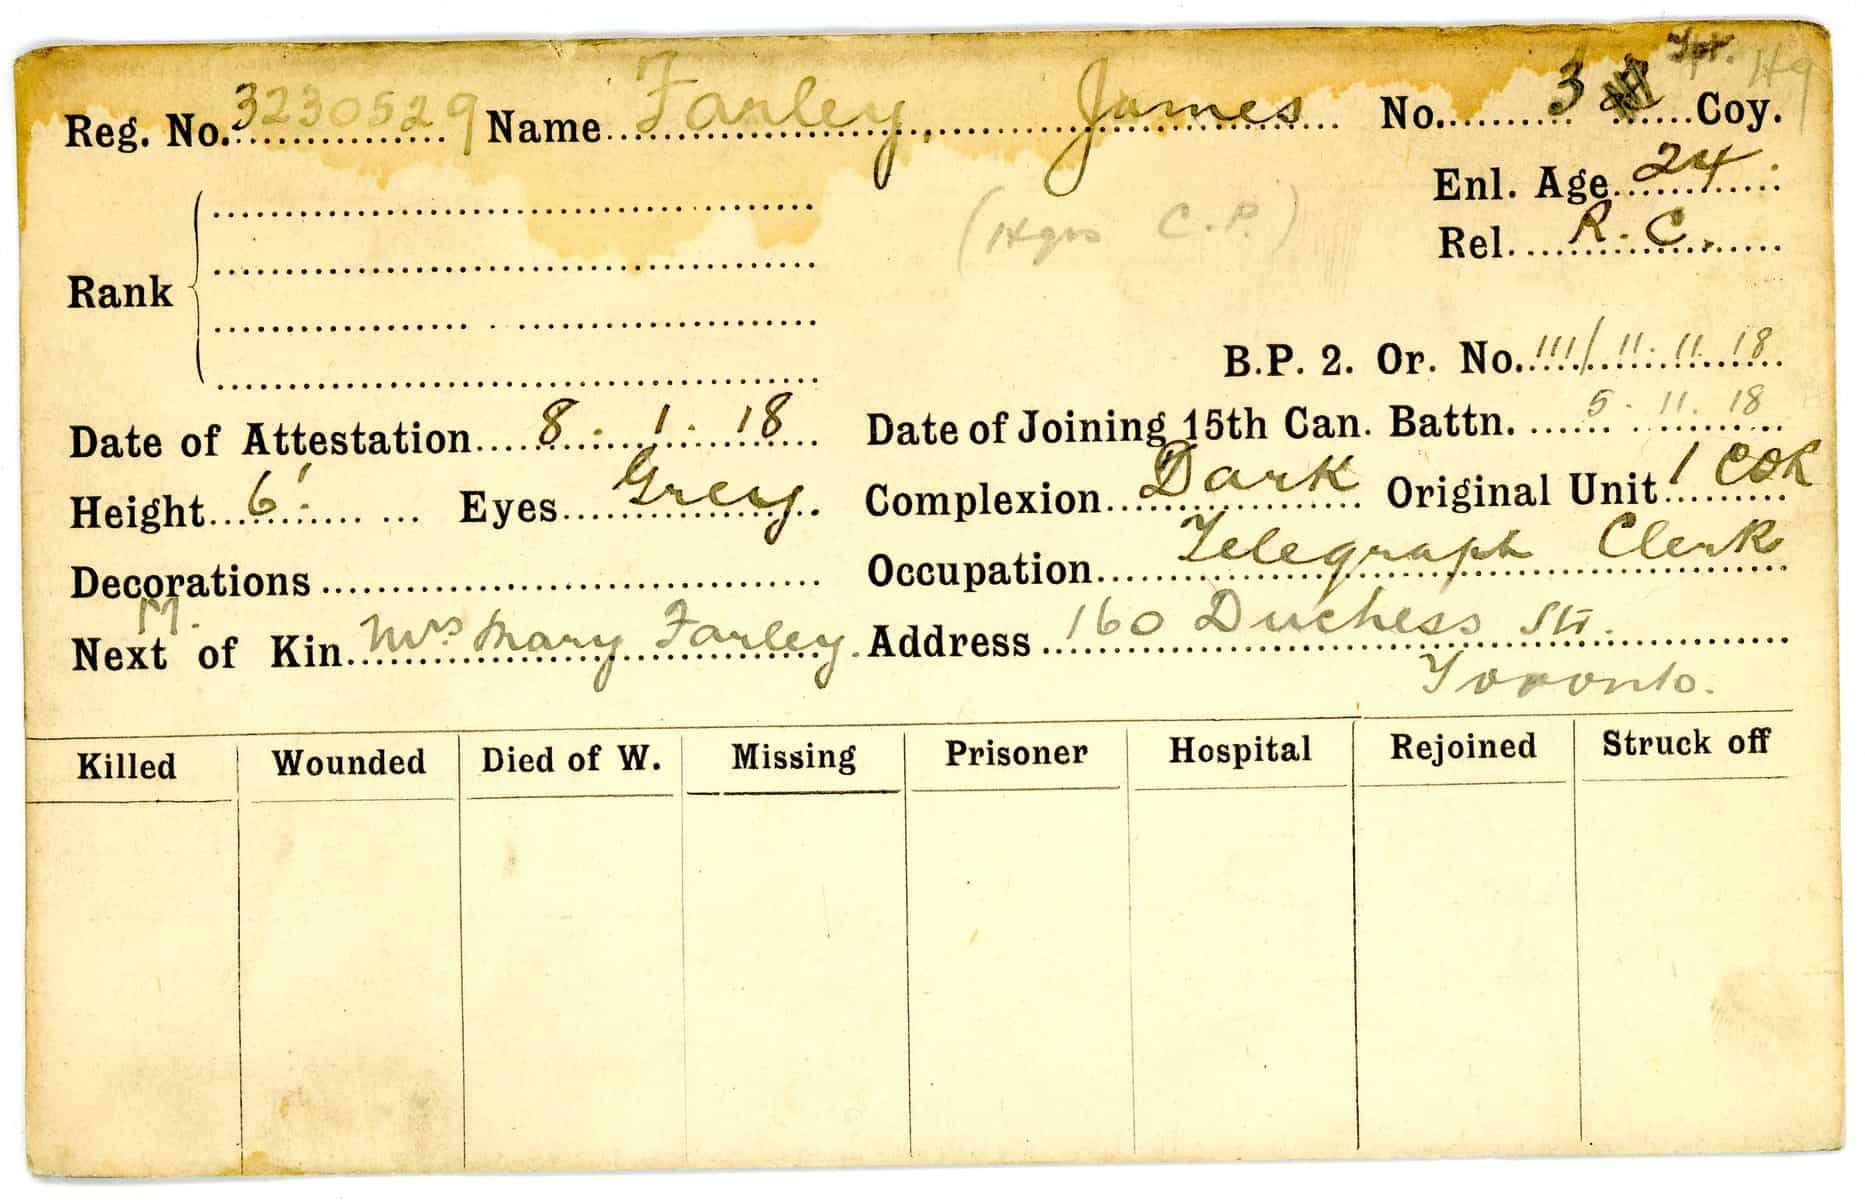 Hq
Reg. No. 3230529 Name Farley, James No. 3 Coy.
Enl. Age 24
(Hqrs C.P.)
Rel. R.C.
Rank
B.P. 2. Or. No. 111/ 11.11.18
Date of Attestation 8.1.18 Date of Joining 15th Can. Battn. 5.11.18
Height 6' Eyes Grey. Complexion Dark Original Unit 1 COR
Decorations Occupation Telegraph Clerk
M.
Next of Kin Mrs Mary Farley. Address 160 Duchess St.
Toronto.
Killed Wounded Died of W. Missing Prisoner Hospital Rejoined Struck off